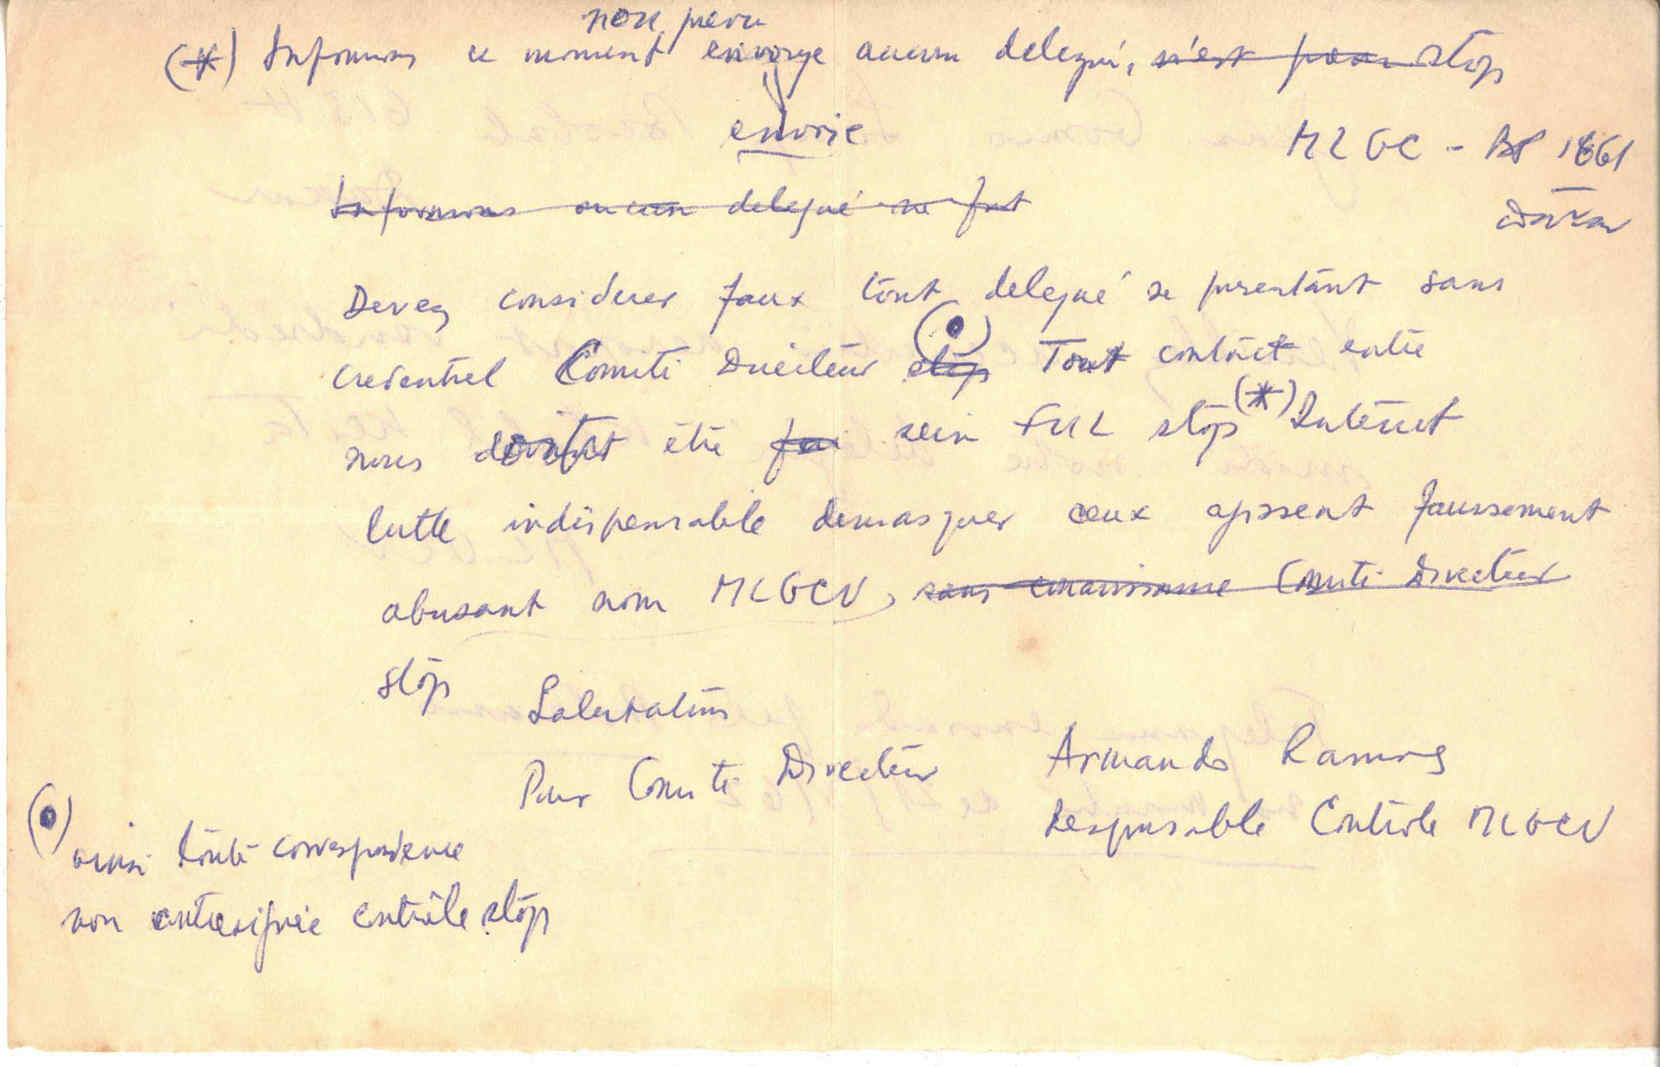 non prevu
(*) Informons ce moment envoye aucun delegué, n'est pour stop
envoie
MLGC - BP 1861
Dakar
Informons aucun delegué ne fut
Devez considerer faux tout delegué se presentant sans
credentiel Comité Directeur stop Tout contact entre
nous doit être sein FUL stop (*) Intérêt
lutte indispensable demasquer ceux agissent faussement
abusant nom MLGCV, sans connaissance Comité Directeur
stop
Salutations
Pour Comité Directeur
Armando Ramos
Responsable Contrôle MLGCV
(•) ainsi toute correspondence
non contresignée contrôle stop